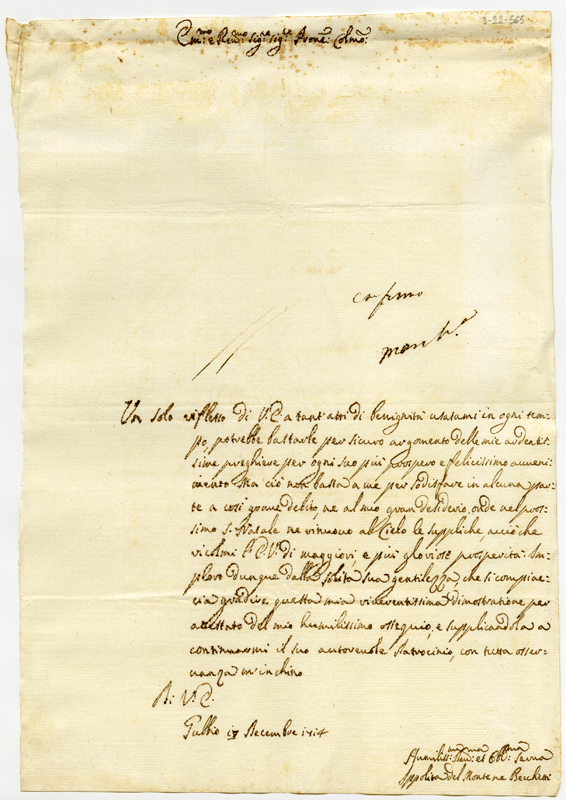 3-22-565
Em:mo e Rev:mo Sig:re Sig:re Prone: Colmo:
Un solo riflesso di V.E. a tant'atti di benignità usatami in ogni tem=
po, potrebbe bastarle per sicuro argomento delle mie ardentis=
sime preghiere per ogni suo più prospero e felicissimo avveni=
mento. Ma ciò non basta a me per sodisfare in alcuna par=
te a così grave debito, ne al mio gran desiderio, onde nel pros=
simo S. Natale ne rinuovo al Cielo le suppliche, acciò che
ricolmi l'E.V. di maggiori, e più gloriose prosperità. Im=
ploro dunque dalla solita sua gentilezza, che si compiac=
cia gradire questa mia riverentissima dimostratione per
attestato del mio humilissimo ossequio, e supplicandola a
continuarmi il suo autorevole Patrocinio, con tutta osser=
vanza m'inchino
Di V.E.
Gubbio 17 Decembre 1714
Humiliss:ma Dev:ma et Obl:ma Serva
Ippolita del Monte ne Beccheri